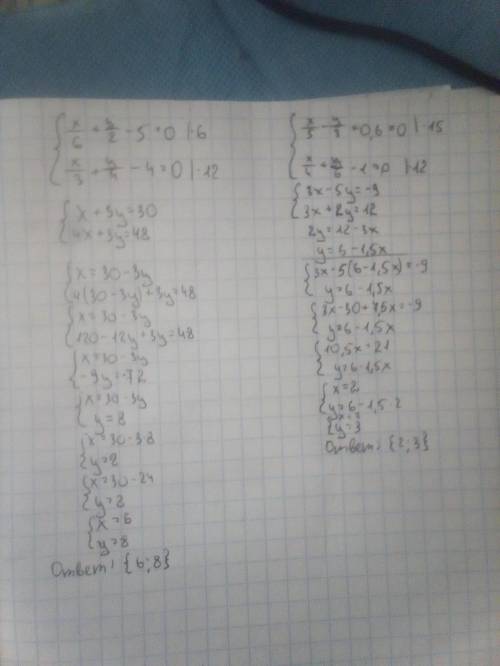 x/6 + y/2 - 5 = 0 | ·6
x/3 + y/4 - 4 = 0 | ·12
x + 3y = 30
4x + 3y = 48
x = 30 - 3y
4(30 - 3y) + 3y = 48
x = 30 - 3y
120 - 12y + 3y = 48
x = 30 - 3y
-9y = -72
x = 30 - 3y
y = 8
x = 30 - 3·8
y = 8
x = 30 - 24
y = 8
x = 6
y = 8
Ответ: {6; 8}
x/5 - y/3 + 0,6 = 0 | ·15
x/4 + y/6 - 1 = 0 | ·12
3x - 5y = -9
3x + 2y = 12
2y = 12 - 3x
y = 6 - 1,5x
3x - 5(6 - 1,5x) = -9
y = 6 - 1,5x
3x - 30 + 7,5x = -9
y = 6 - 1,5x
10,5x = 21
y = 6 - 1,5x
x = 2
y = 6 - 1,5·2
x = 2
y = 3
Ответ: {2; 3}